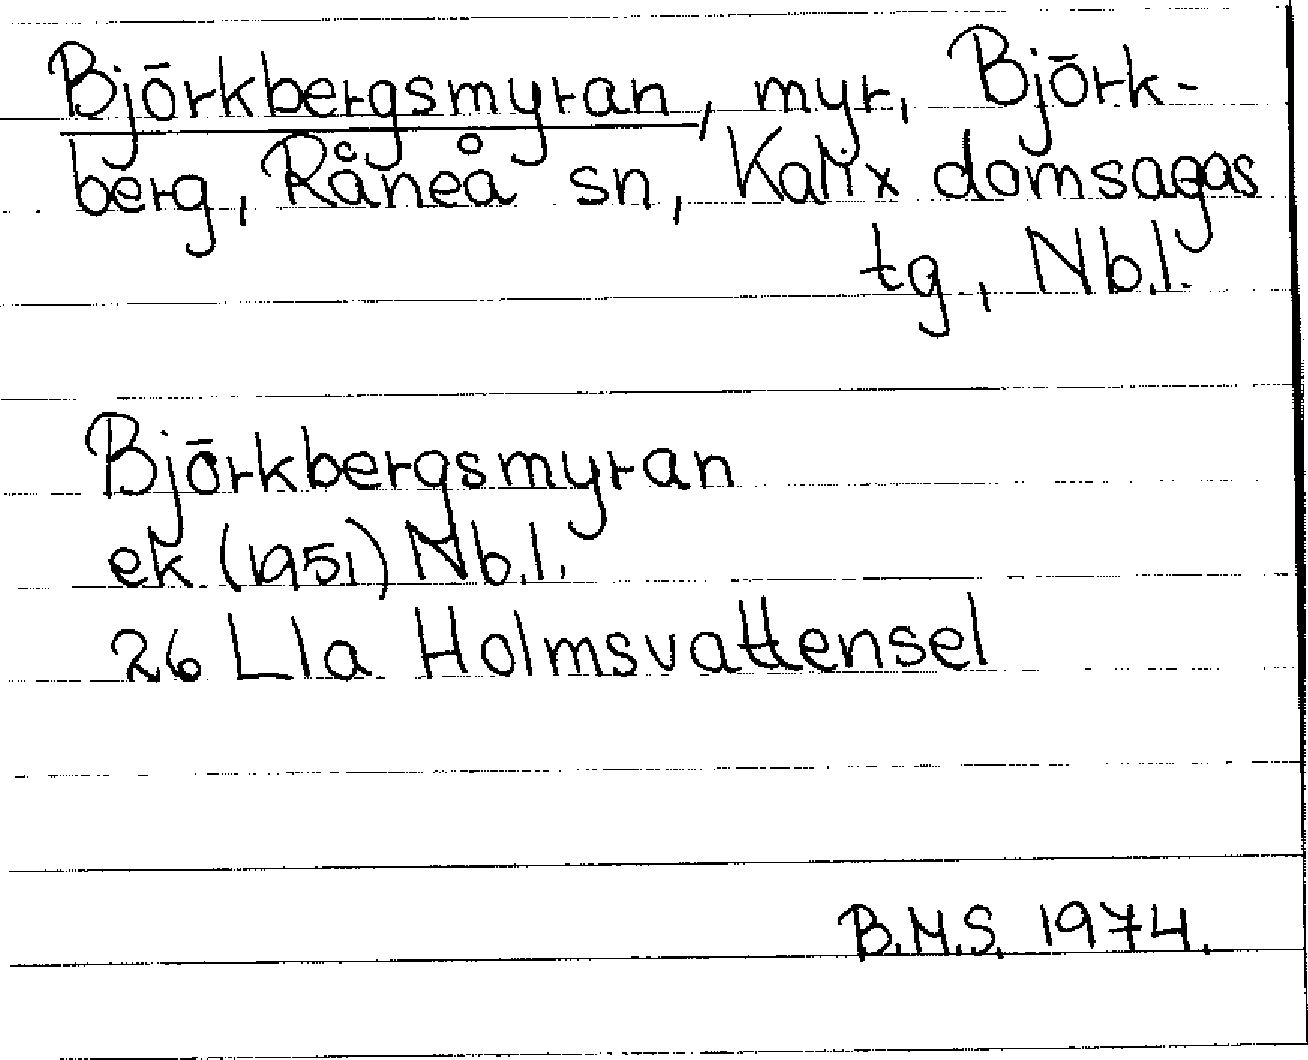 Björkbergsmyran, myr, Björk-
berg, Råneå sn, Kalix domsagas
tg, Nb.l.
Björkbergsmyran
ek (1951) Nb.l.
26 Lla Holmsvattensel
B.M.S. 1974.